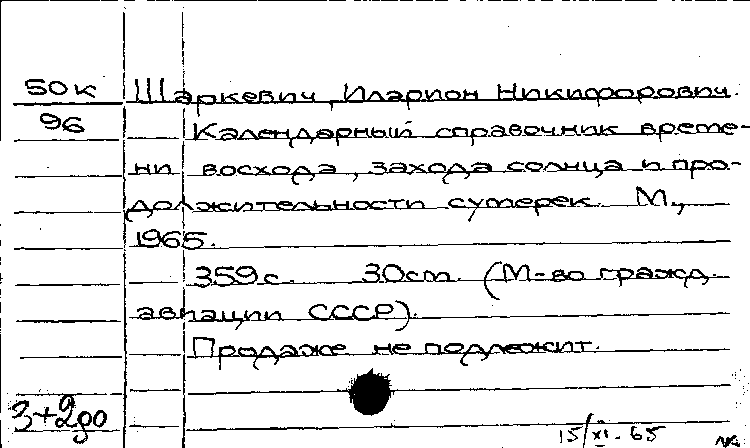 50к Шаркевич, Иларион Никифорович.
96 Календарный справочник време-
ни восхода, захода солнца и про-
должительности сумерек. М.,
1965.
359с. 30см. (М-во гражд.
авиации СССР).
Продаже не подлежит.
15/XI-65